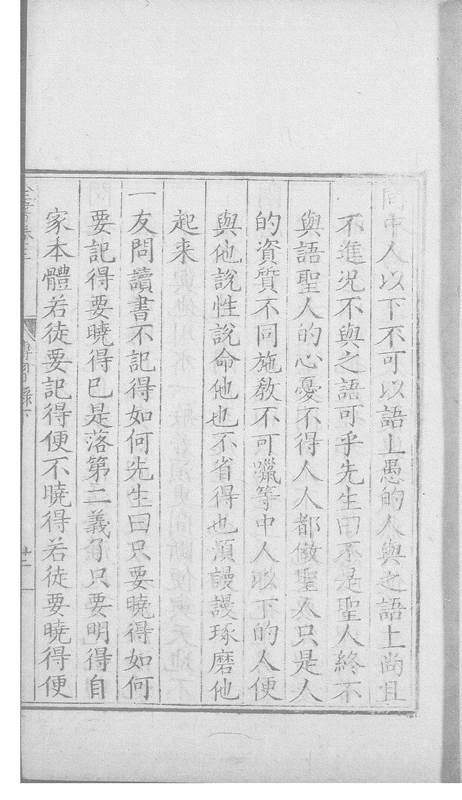 問中人以下不可以語上愚的人與之語上尚且
不進況不與之語可乎先生曰不是聖人終不
與語聖人的心憂不得人人都做聖人只是人
的資質不同施敎不可躐等中人以下的人便
與他說性說命他也不省得也須謾謾琢磨他
起来
一友問讀書不記得如何先生曰只要曉得如何
要記得要曉得已是落第二義了只要明得自
家本體若徒要記得便不曉得若徒要曉得便